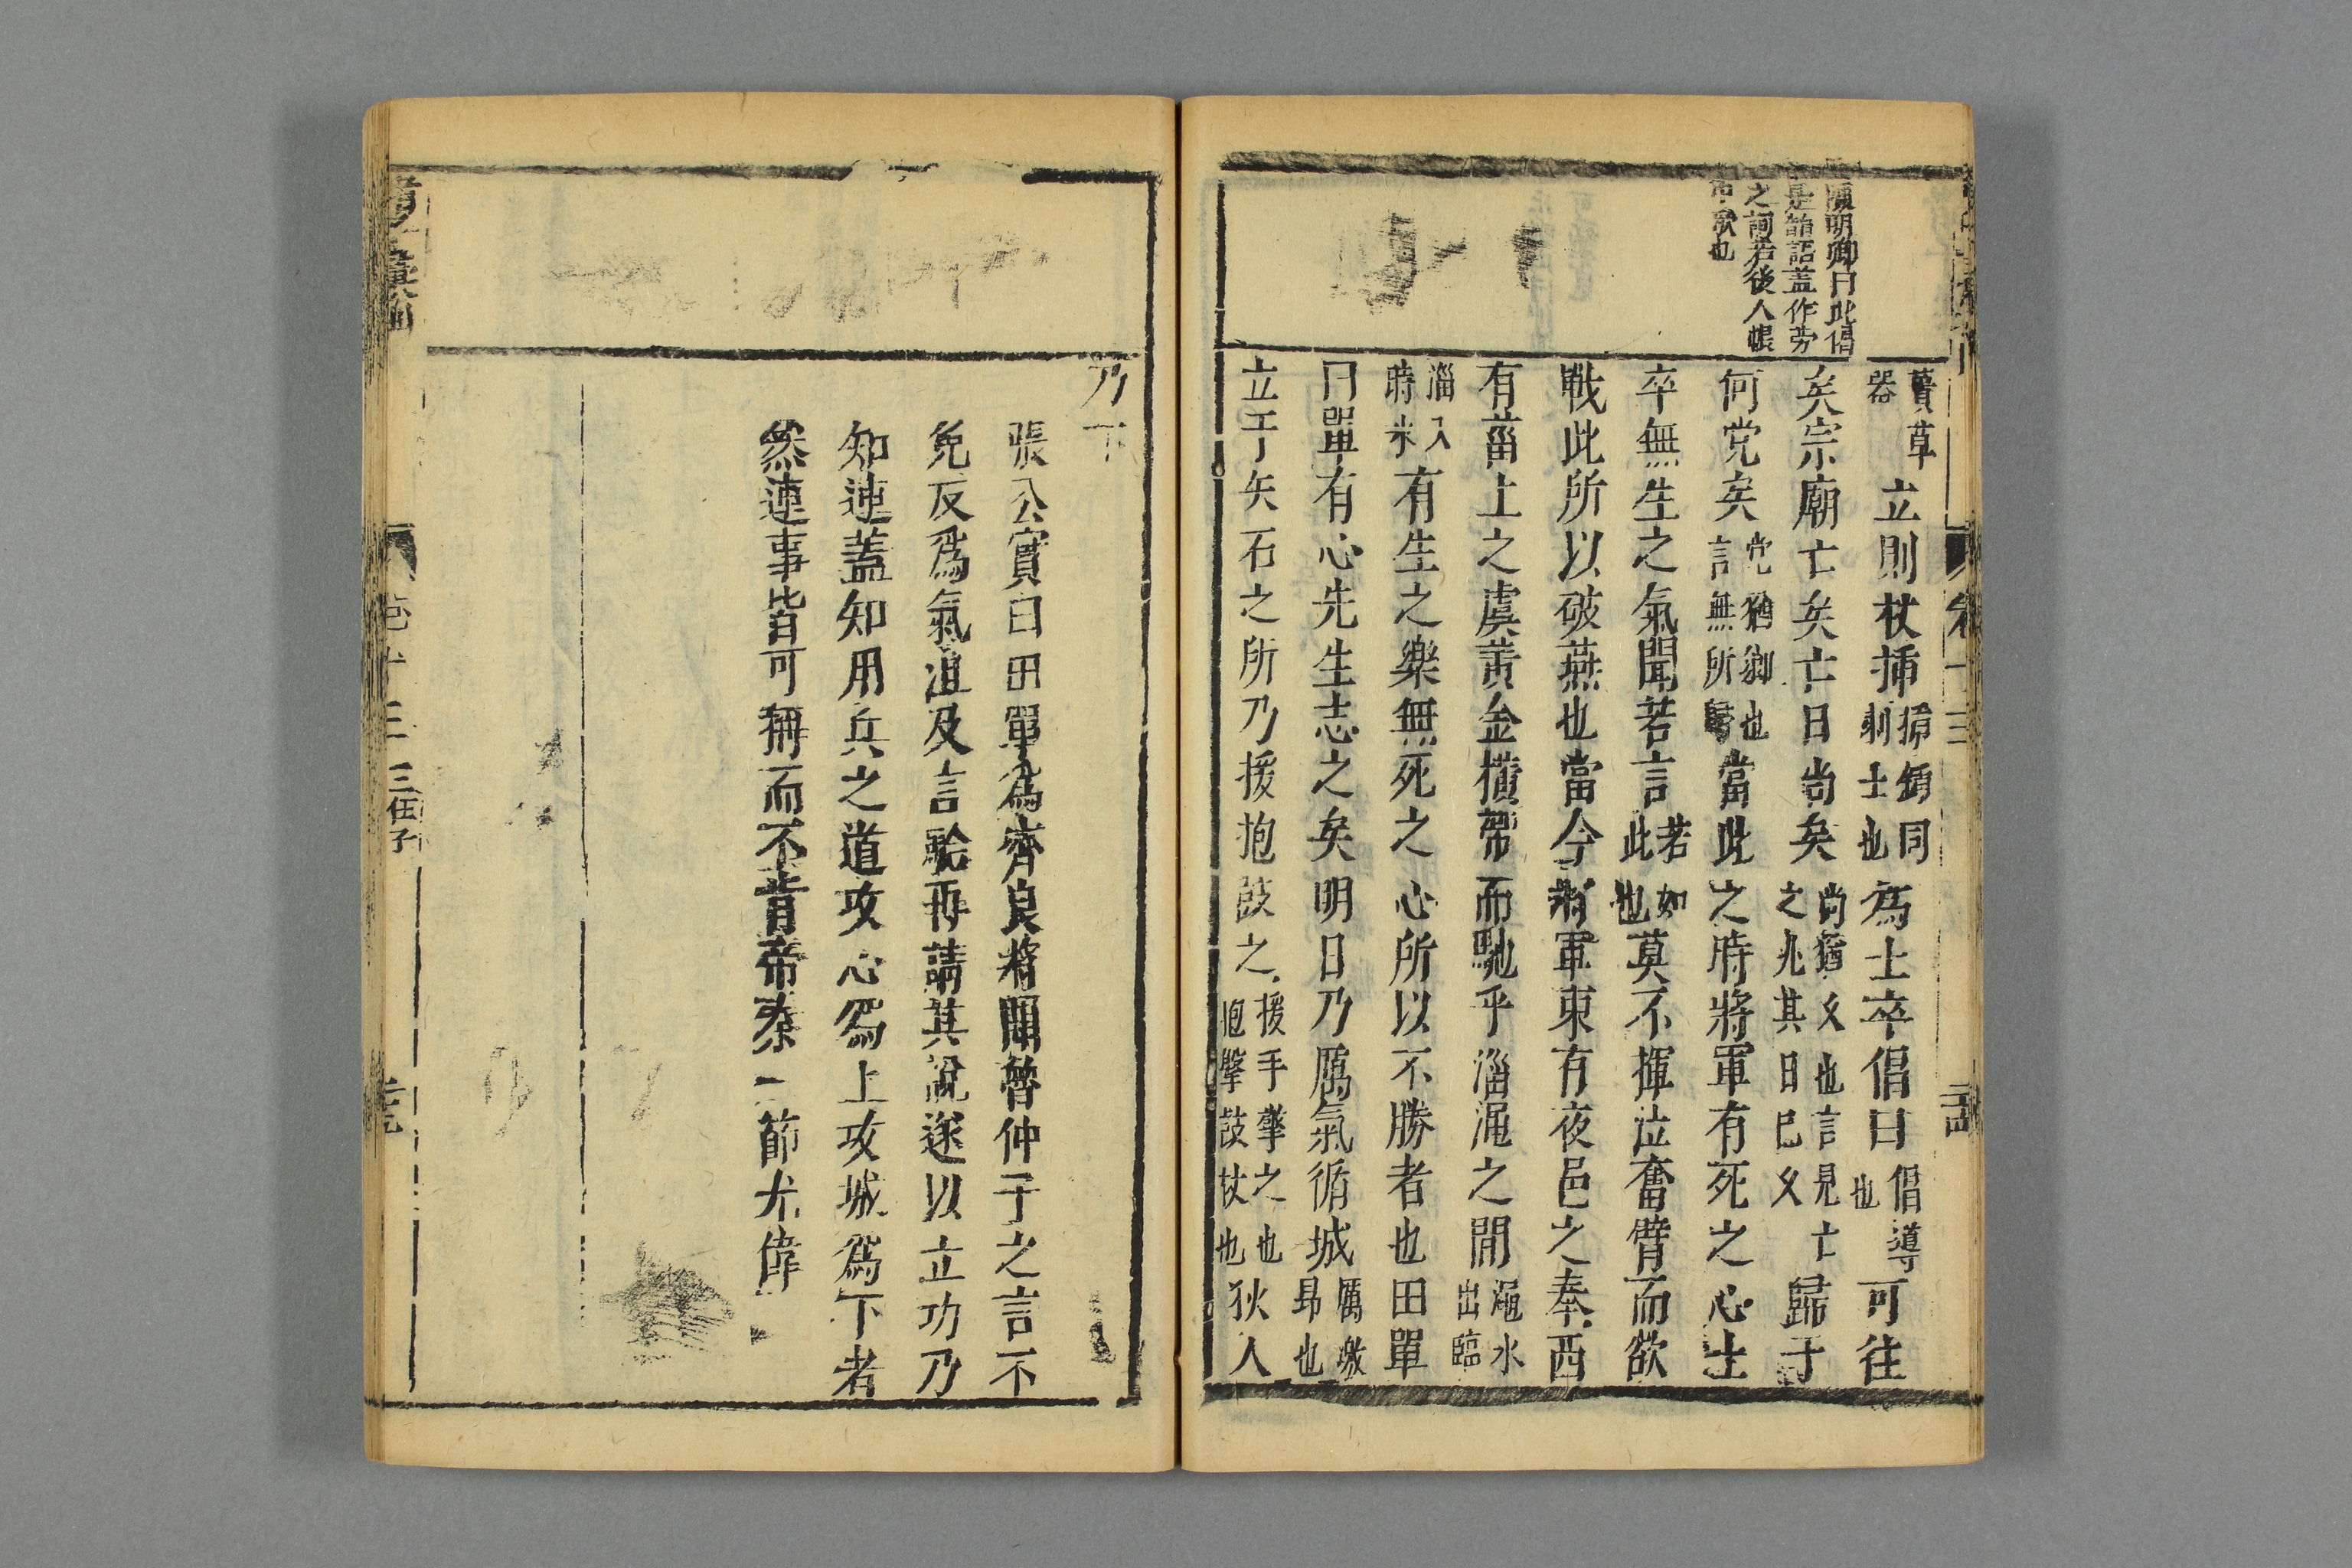 陳明卿曰此倡
是韻語蓋作勞
之詞若後人帳
中歌也
蕢草
器
立則杖揷
揷鍤同
剌土也
為士卒倡曰
倡導
也
可往
矣宗廟亡矣亡日尚矣
尚猶久也言見亡
之兆其日已久
歸于
何党矣
党猶鄉也
言無所歸
當此之時將軍有死之心士
卒無生之氣聞若言
若如
此也
莫不揮泣奮臂而欲
戰此所以破燕也當今將軍東有夜邑之奉西
有菑上之虞黃金橫帶而馳乎淄澠之間
澠水
出臨
淄入
時水
有生之樂無死之心所以不勝者也田單
曰單有心先生志之矣明日乃厲氣循城
厲激
昂也
立于矢石之所乃援抱鼓之
援手擊之也
抱擊鼓杖也
狄人
卷十三
乃下
張公實曰田單為齊良將聞魯仲子之言不
免反為氣沮及言驗再請其說遂以立功乃
知連蓋知用兵之道攻心為上攻城為下者
然連事皆可稱而不肯帝秦一節尤偉
卷十三
三伍子